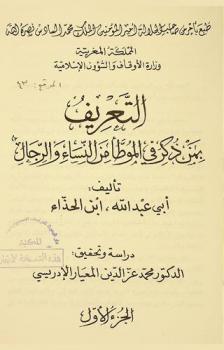 طبع بأمر من صاحب الجلالة أمير المؤمنين الملك محمد السادس نصره الله
المملكة المغربية
وزارة الأوقاف والشؤون الإسلامية
التعريف
بمن ذكر في الموطأ من النساء والرجال
تأليف:
أبي عبد الله، ابن الحذاء
دراسة وتحقيق:
الدكتور محمد عز الدين المعيار الإدريسي
الجزء الأول